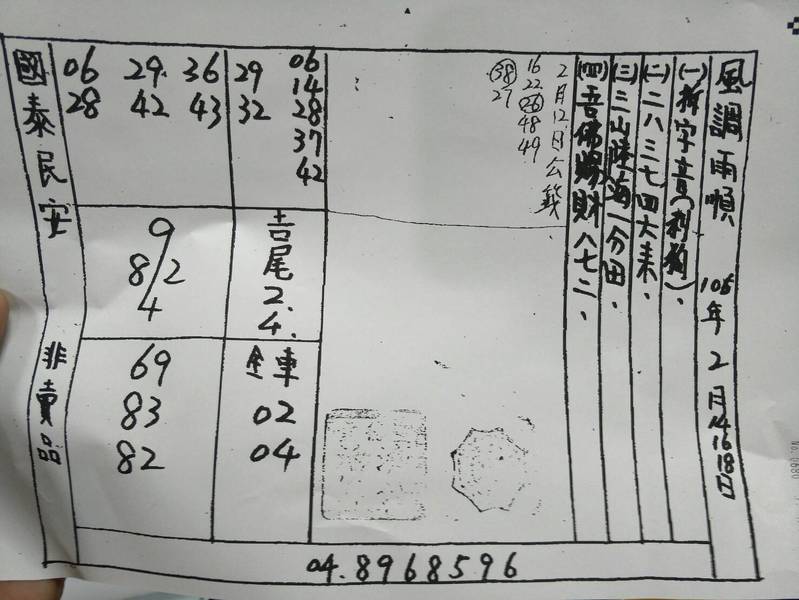 風調雨順 106年2月14 16 18日
(一)拆字音(利狗)、
(二)二八三七四六來、
(三)三山陸海一分田、
(四)吾佛賜財八七二、
2月12日公籤、
16 22 26 48 49
38 27
06 14 28 37 42
29 32
吉尾2.4.
全車 02 04
36 43
29 42
06 28
9
8/2
4
69
83
82
國泰民安 非賣品
04.8968596